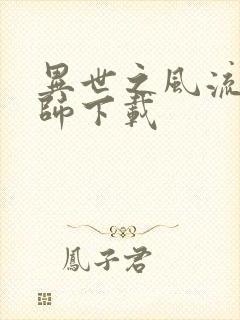 異世之風流
師下載
鳳子君